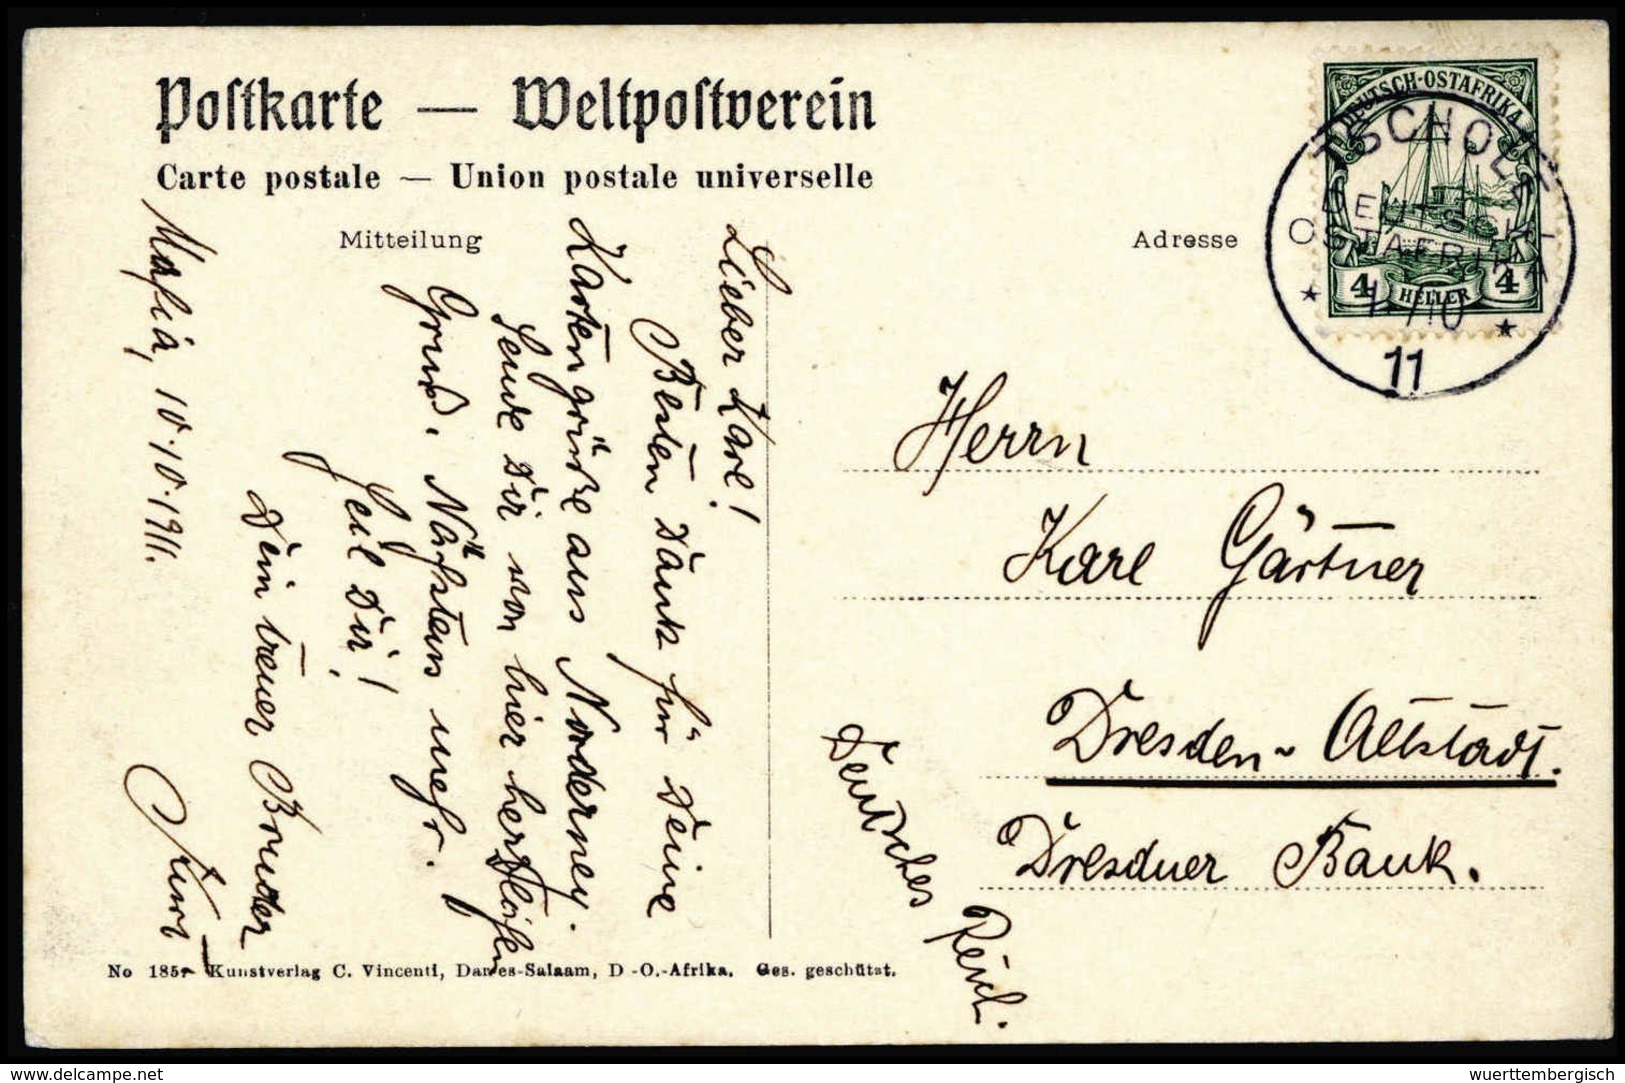 Postkarte — Weltpostverein
Carte postale — Union postale universelle
Mitteilung
Adresse
DEUTSCH-OSTAFRIKA
4 HELLER 4
TSCHOLE
DEUTSCH-
OSTAFRIKA
11
Mafia, 10.10.1911.
Lieber Karl!
Besten Dank für Deine
Kartengrüße aus Norderney.
Sende Dir von hier herzlichen
Gruß. Nächstens mehr.
Heil Dir!
Dein treuer Bruder
Kurt
Herrn
Karl Gärtner
Dresden-Altstadt.
Dresdner Bank.
Deutsches Reich.
No 185 Kunstverlag C. Vincenti, Dar-es-Salaam, D-O.-Afrika. Ges. geschützt.
www.delcampe.net
wuerttembergisch